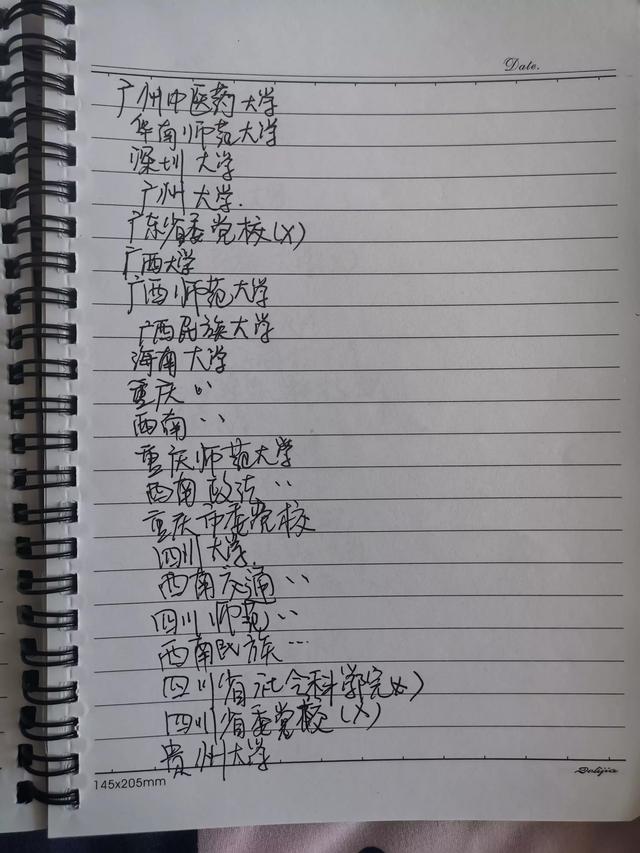 Date.
广州中医药大学
华南师范大学
深圳大学
广州大学.
广东省委党校(X)
广西大学
广西师范大学
广西民族大学
海南大学
重庆〃
西南〃
重庆师范大学
西南政法〃
重庆市委党校
四川大学
西南交通〃
四川师范〃
西南民族…
四川省社会科学院(X)
四川省委党校(X)
贵州大学
145x205mm